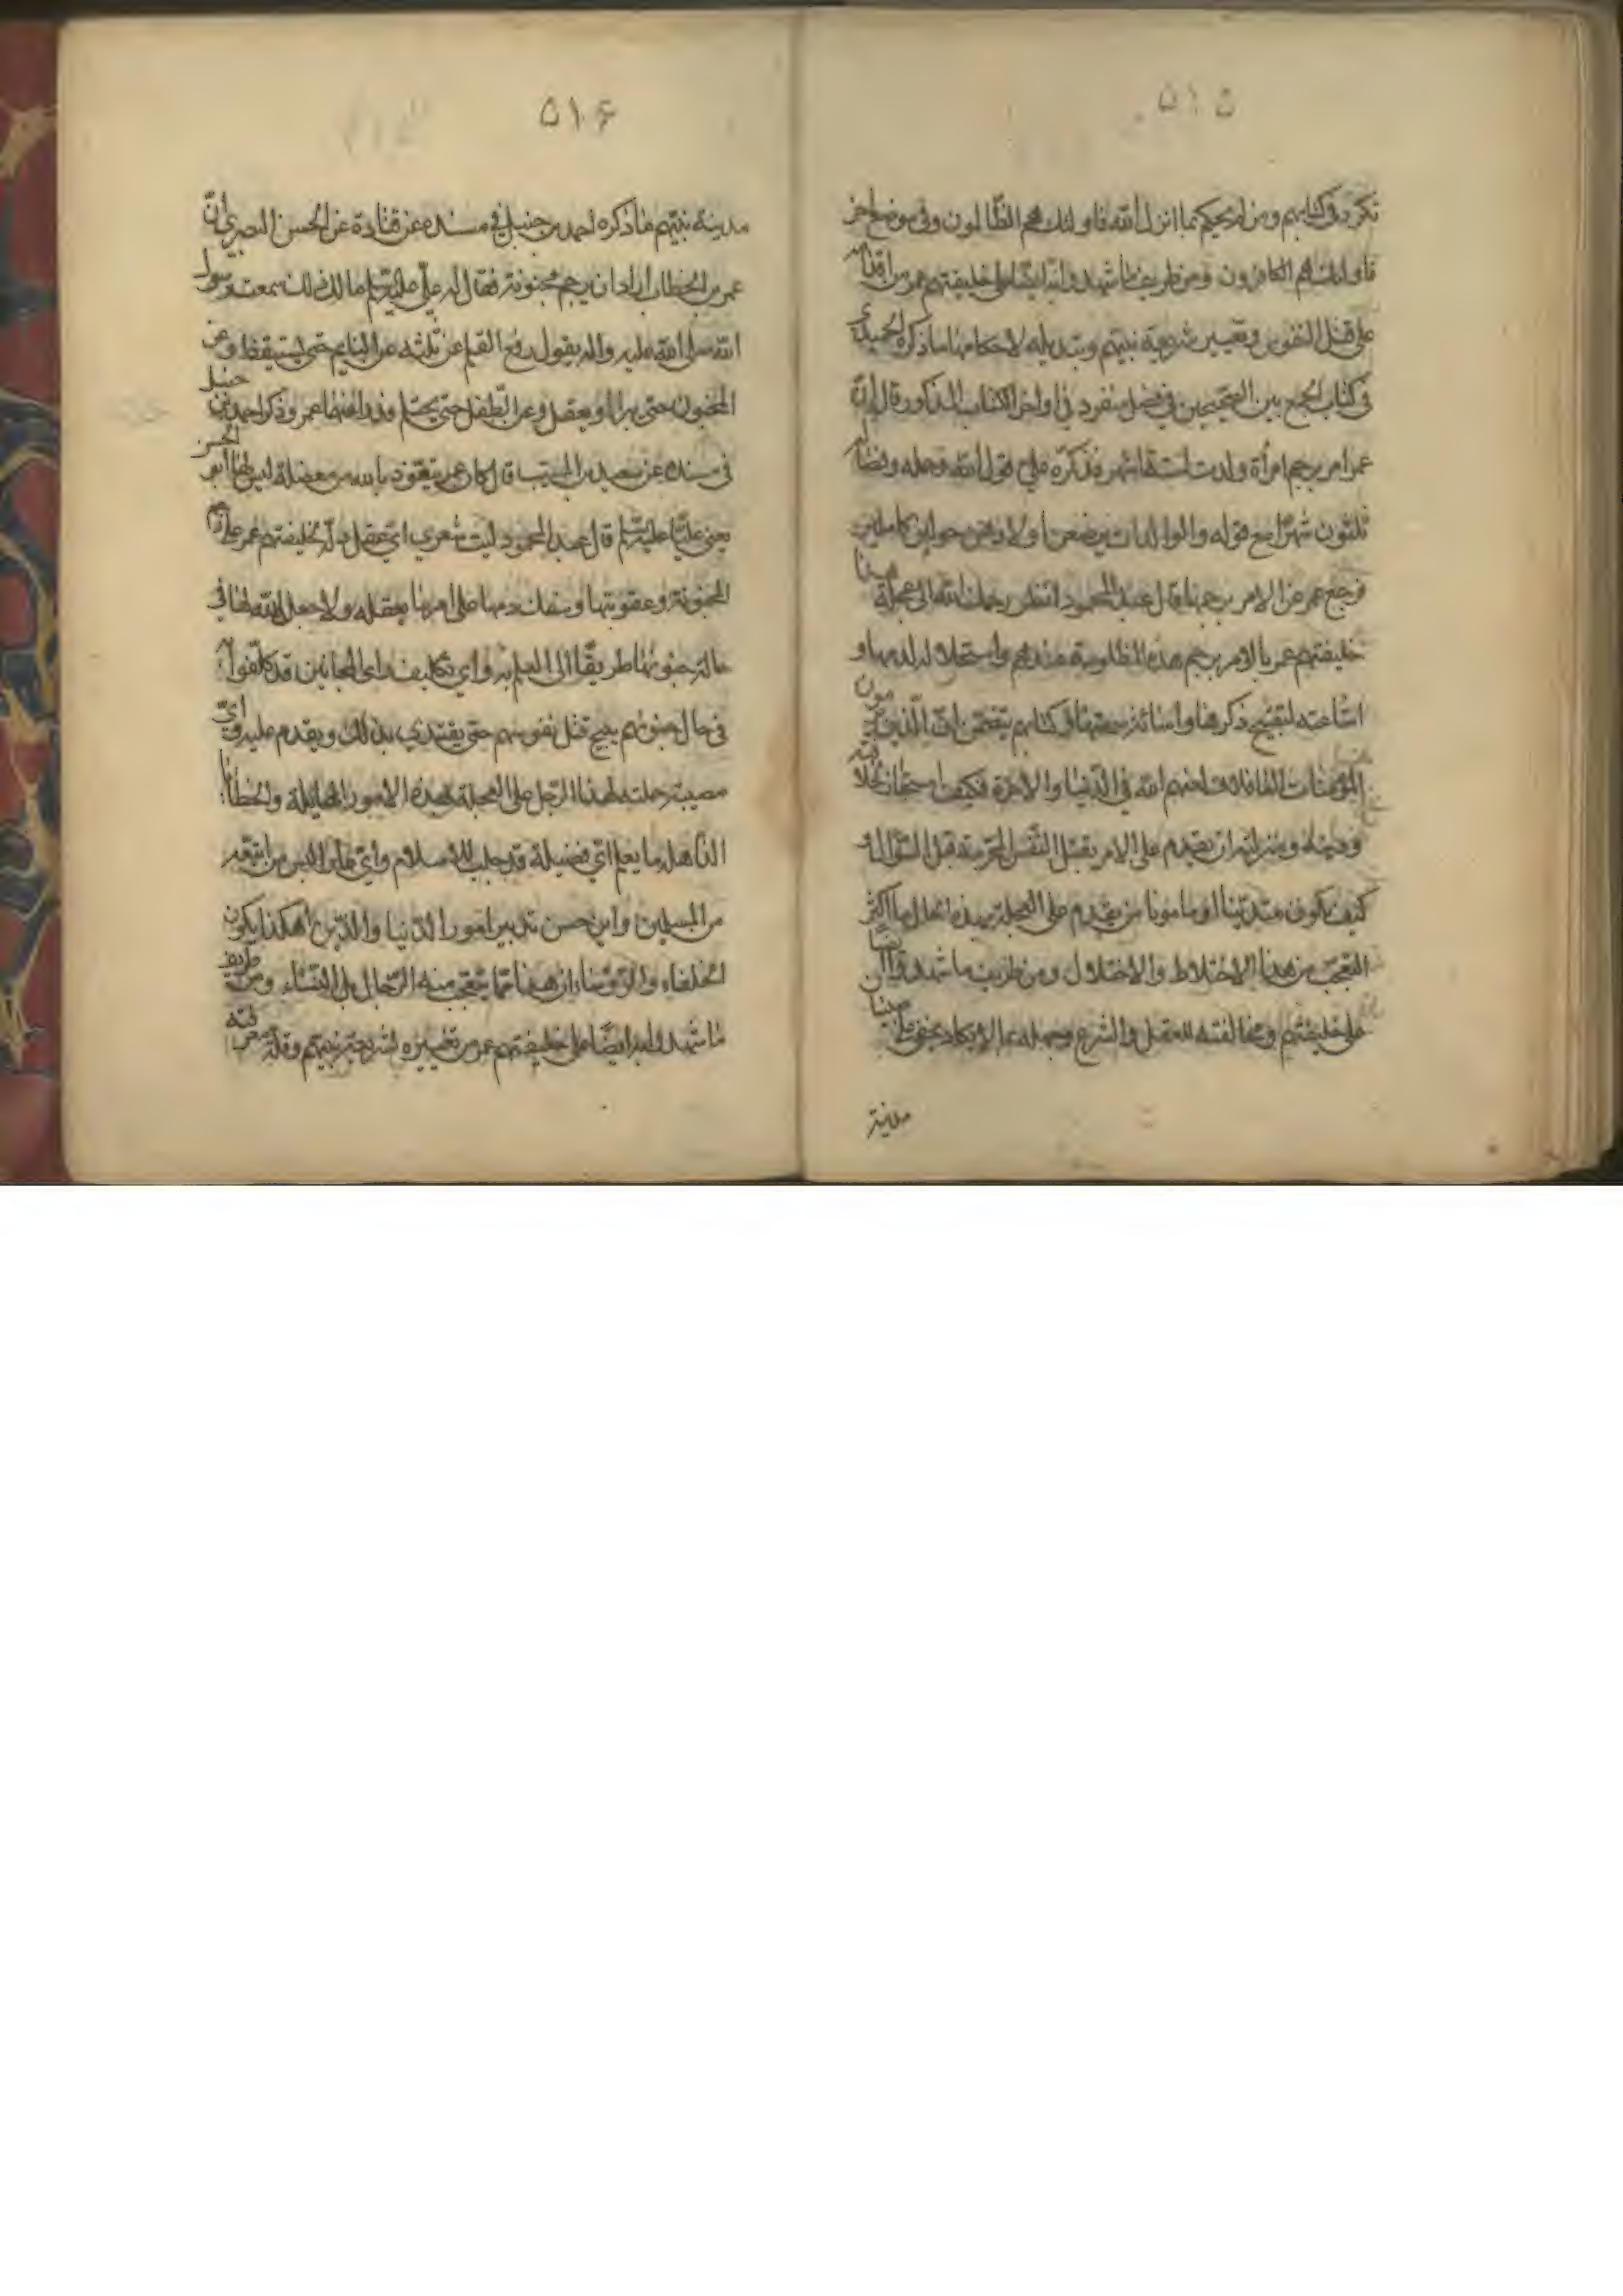 ٥١٥
تكرر في كتابهم ومن لم يحكم بما انزل الله فاولئك هم الظالمون وفي موضع اخر
فاولئك هم الكافرون ومن طريف ما شهدوا به ايضا على خليفتهم عمر من اقدامه
على قتل النفوس وتغيير شريعة نبيهم وتبديله لاحكامها ما ذكره الحميدي
في كتاب الجمع بين الصحيحين في فصل منفرد في اواخر الكتاب المذكور قال ان
عمر امر برجم امرأة ولدت لستة اشهر فذكره علي قول الله وحمله وفصاله
ثلثون شهرا مع قوله والوالدات يرضعن اولادهن حولين كاملين
فرجع عمر عن الامر برجمها قال عبد المحمود انظر رحمك الله الى عجلة
خليفتهم عمر بالامر برجم هذه المظلومة عندهم واستحلاله لدمها و
اشاعته لتقبيح ذكرها واساءة سمعتها وكتابهم يتضمن ان الذين يرمون
المؤمنات الغافلات لعنهم الله في الدنيا والاخرة فكيف استجاز
ان يقدم على الامر بقتل النفس المحرمة قبل السؤال و
كيف يكون متدينا او مامونا من يقدم على العجلة بهذه الحال ما اكثر
التعجب من هذا الاختلاط والاختلال ومن طريف ما شهدوا
على خليفتهم ومخالفته للعقل والشرع وجهله بما لا يكاد يخفى
مدينة
٥١۶
مدينة نبيهم ما ذكره احمد بن حنبل في مسنده عن قتادة عن الحسن البصري ان
عمر بن الخطاب اراد ان يرجم مجنونة فقال له علي عليه السلم ما لك ذلك سمعت رسول
الله صلى الله عليه واله يقول رفع القلم عن ثلثه عن النايم حتى يستيقظ وعن
المجنون حتى يبرا او يعقل وعن الطفل حتى يحتلم فدرا عنها عمر وذكر احمد بن حنبل
في مسنده عن سعيد بن المسيب قال كان عمر يتعوذ بالله من معضلة ليس لها ابو الحسن
يعني عليا عليه السلم قال عبد المحمود ليت شعري اي عقل دل خليفتهم عمر على رجم
المجنونة وعقوبتها وسفك دمها على امر بنا بعقله ولا جعل الله لها في
حالة جنونها طريقا الى العلم به واي تكاليف راى المجانين قد كلفوا بها
في حال جنونهم يبيح قتل نفوسهم حتى يقتدي بذلك ويقدم عليه واي
مصيبة حملت هذا الرجل على العجلة لهذه الامور الهايلة والخطا
ما يعلم اي فضيلة قد جلب للاسلام واي
من المسلمين واين حسن تدبير امور الدنيا والدين اهكذا يكون
الخلفاء والرؤساء ان هذا مما يتعجب منه الرجال بل النساء ومن طريف
ما شهدوا به ايضا على خليفتهم عمر من تغييره لشريعة نبيهم وقلة معرفته